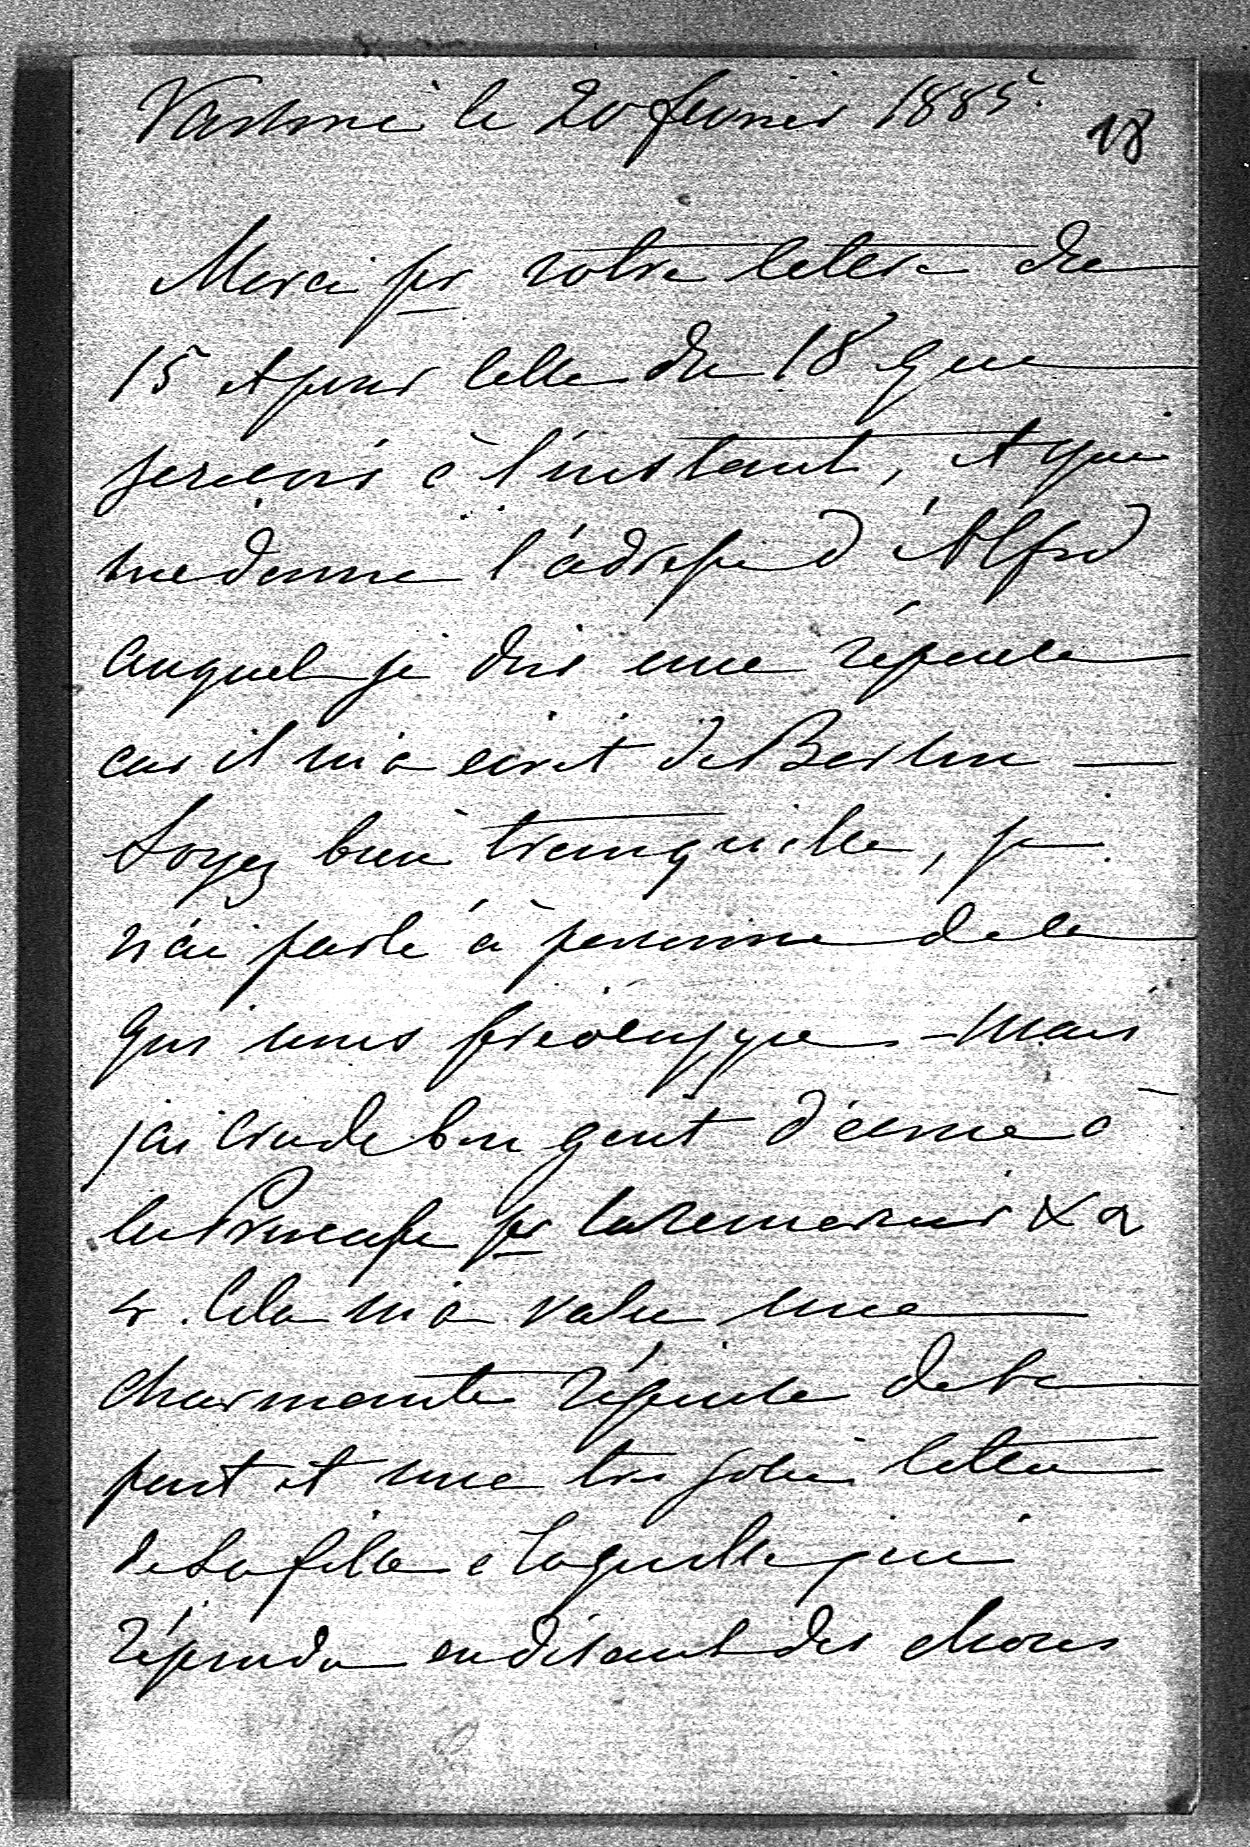 le 20 fevrier 1885.
18
Merci pr votre lettre du
15 et pour celle du 18 que
je reçois à l'instant, et qui
me donne l'adresse d'Alfred
auquel je dois une réponse
car il m'a ecrit de Berlin —
Soyez bien tranquille, je
n'ai parlé à personne de ce
qui nous préoccuppe - Mais
j'ai cru de bon gout d'ecrire à
la Princesse pr la remercier &a
&. Cela m'a valu une
charmante réponse de sa
part et une très jolie lettre
de sa fille à laquelle j'ai
répondu en disant des choses